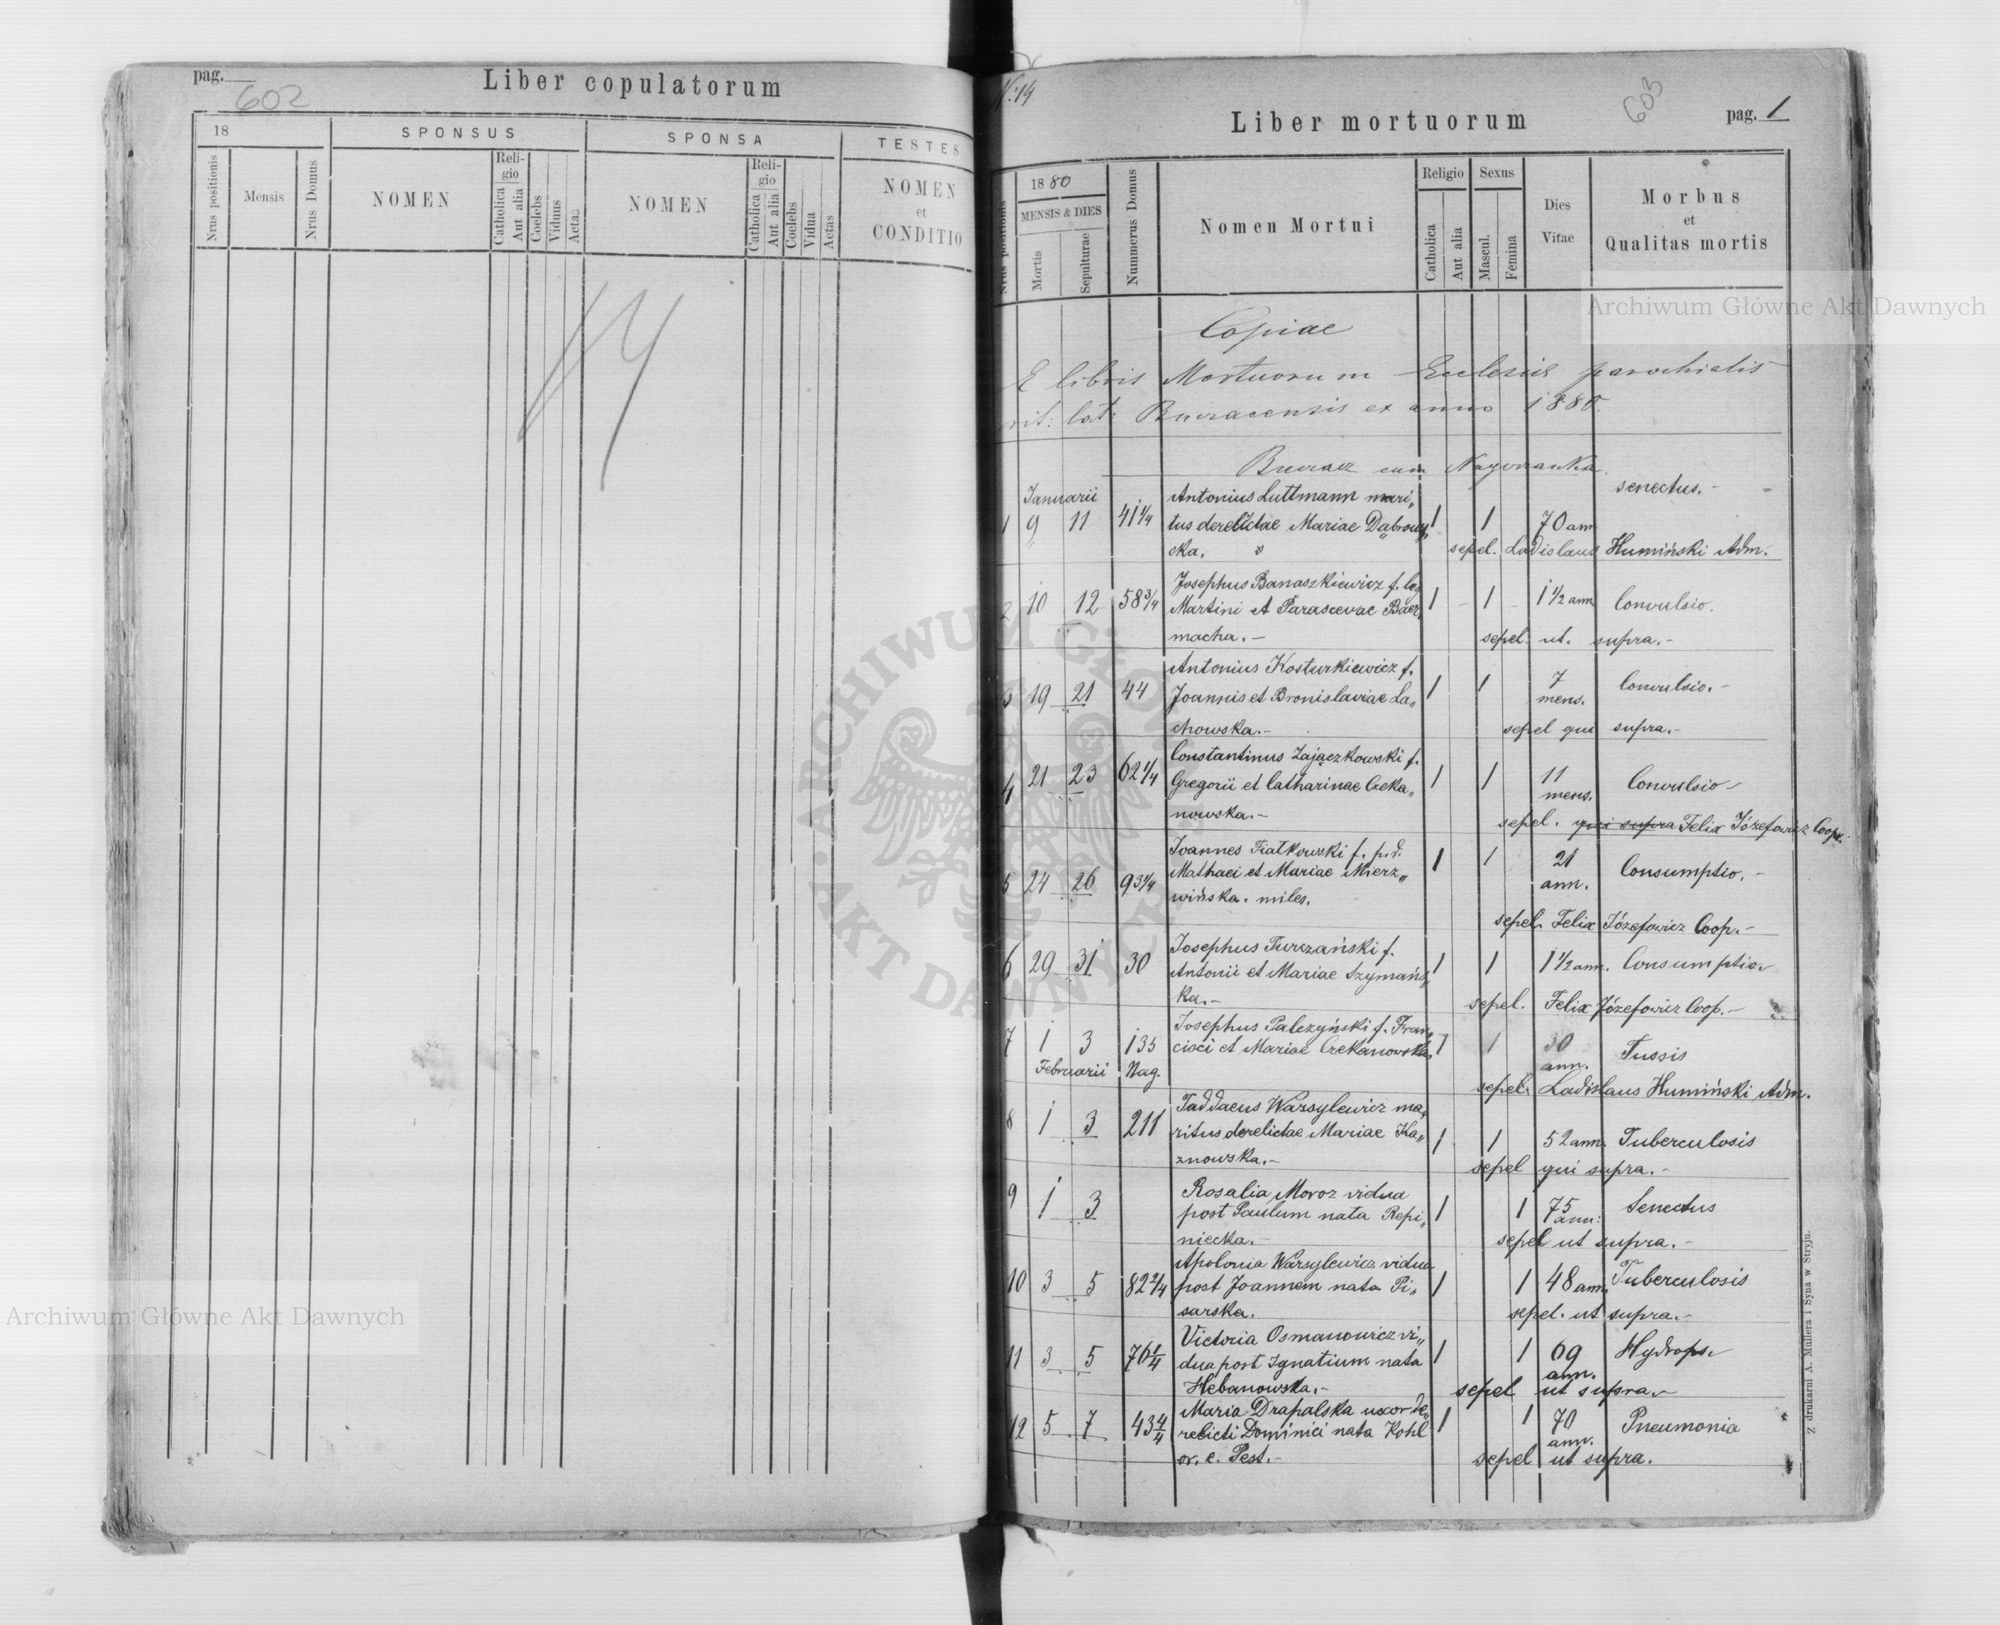 pag.
602
Liber copulatorum
18
SPONSUS
SPONSA
TESTES
Nrus positionis
Mensis
Nrus Domus
NOMEN
Reli-
gio
Catholica
Aut alia
Coelebs
Viduus
Aetas
NOMEN
Reli-
gio
Catholica
Aut alia
Coelebs
Vidua
Aetas
NOMEN
et
CONDITIO
14
603
Liber mortuorum
pag. 1
Nrus positionis
1880
MENSIS & DIES
Mortis
Sepulturae
Nummerus Domus
Nomen Mortui
Religio
Catholica
Aut alia
Sexus
Mascul.
Femina
Dies
Vitae
Morbus
et
Qualitas mortis
Copiae
E libris Mortuorum Ecclesiae parochialis
rit: lat: Buczacensis ex anno 1880.
Buczacz cum Nagorzanka.
Januarii
1 9 11 41 1/4 Antonius Luttmann mari„ 1 1 70 ann senectus.-
tus derelictae Mariae Dąbrow„
ska.
sepel. Ladislaus Humiński Adm.
2 10 12 58 3/4 Josephus Banaszkiewicz f. leg. 1 - 1 - 1 1/2 ann Convulsio.
Martini et Parascevae Bacz„
macha.-
sepel. ut. supra.-
3 19 21 44 Antonius Kosturkiewicz f. 1 1 7 mens. Convulsio.-
Joannis et Bronislaviae La„
chowska.-
sepel qui supra.-
4 21 23 62 1/4 Constantinus Zajączkowski f. 1 1 11 mens. Convulsio-
Gregorii et Catharinae Czeka„
nowska.-
sepel. qui supra Felix Józefowicz Coop.
5 24 26 93 1/4 Joannes Fiatkowski f. p.d. 1 1 21 ann. Consumptio.-
Mathaei et Mariae Mierz„
wińska. miles.
sepel. Felix Józefowicz Coop.-
6 29 31 30 Josephus Turczański f. 1 1 1 1/2 ann. Consumptio.
Antonii et Mariae Szymańs„
ka.-
sepel. Felix Józefowicz Coop.-
7 1 3 135 Josephus Palczyński f. Fran„ 1 1 30 ann. Tussis
Februarii Nag. cisci et Mariae Czekanowska.
sepel. Ladislaus Humiński Adm.
8 1 3 211 Taddaeus Warsylewicz ma„ 1 1 52 ann. Tuberculosis
ritus derelictae Mariae Ka„
znowska.-
sepel qui supra.-
9 1 3 Rosalia Moroz vidua 1 1 75 ann: Senectus
post Paulum nata Repi„
niecka.-
sepel ut supra.-
10 3 5 82 2/4 Apolonia Warsylewicz vidua 1 1 48 ann. Tuberculosis
post Joannem nata Pi„
sarska.
sepel. ut supra.-
11 3 5 76 1/4 Victoria Osmanowicz vi„ 1 1 69 ann. Hydrops.
dua post Ignatium nata
Hebanowska.-
sepel ut supra.-
12 5 7 43 4/4 Maria Drapalska uxor de„ 1 1 70 ann. Pneumonia
relicti Dominici nata Kohl
or. e. Pest.-
sepel ut supra.
Z drukarni A. Müllera i Syna w Stryju.
Archiwum Główne Akt Dawnych
Archiwum Główne Akt Dawnych
ARCHIWUM GŁÓWNE AKT DAWNYCH